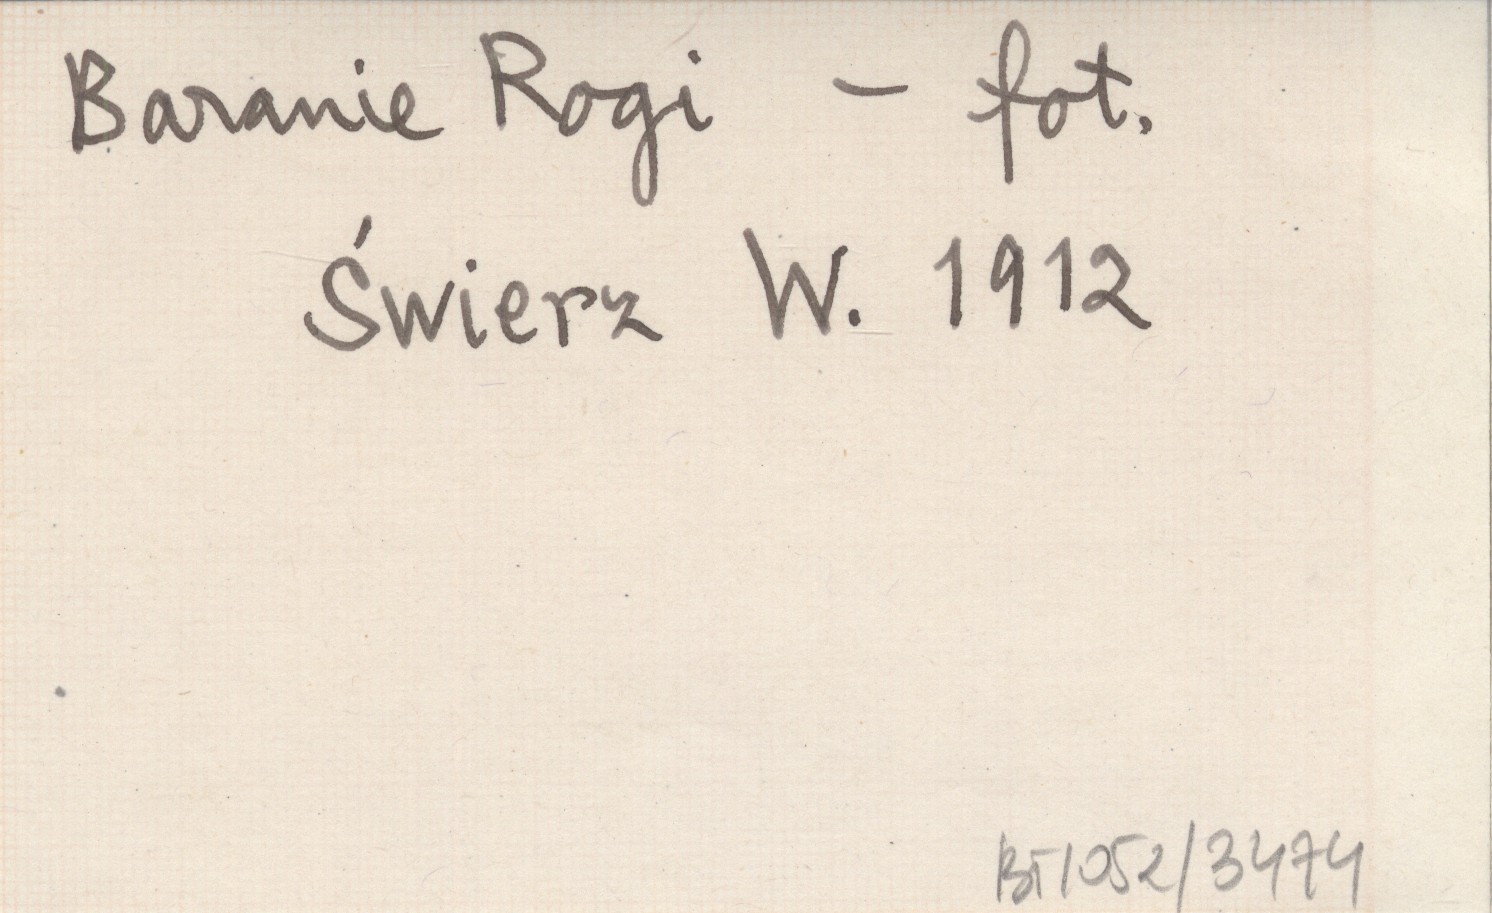 Baranie Rogi - fot.
Świerz W. 1912
BT/052/3474